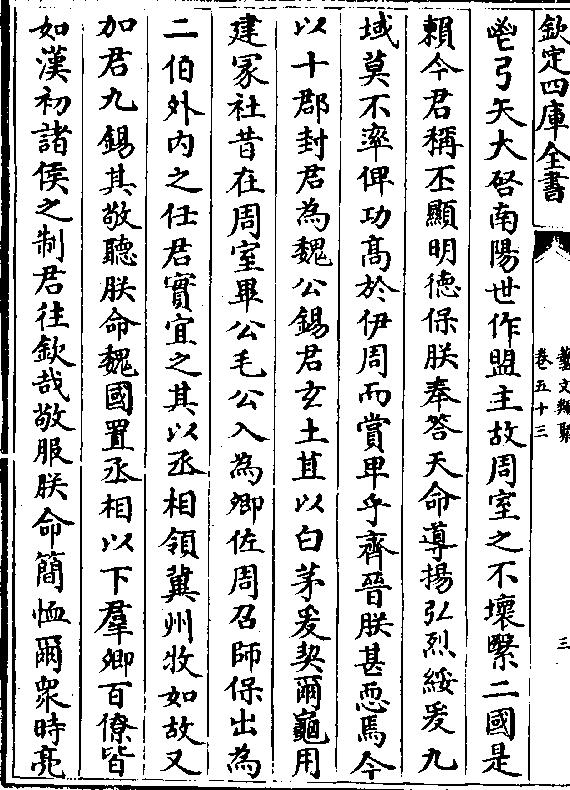 欽定四庫全書
藝文類聚
卷五十三
三
鬯弓矢大啓南陽世作盟主故周室之不壞繄二國是
賴今君稱丕顯明德保朕奉答天命導揚弘烈綏爰九
域莫不率俾功髙於伊周而賞卑乎齊晉朕甚恧焉今
以十郡封君為魏公錫君玄土苴以白茅爰契爾龜用
建冢社昔在周室畢公毛公入為卿佐周召師保出為
二伯外内之任君實宜之其以丞相領冀州牧如故又
加君九錫其敬聽朕命魏國置丞相以下羣卿百僚皆
如漢初諸侯之制君往欽哉敬服朕命簡恤爾衆時亮